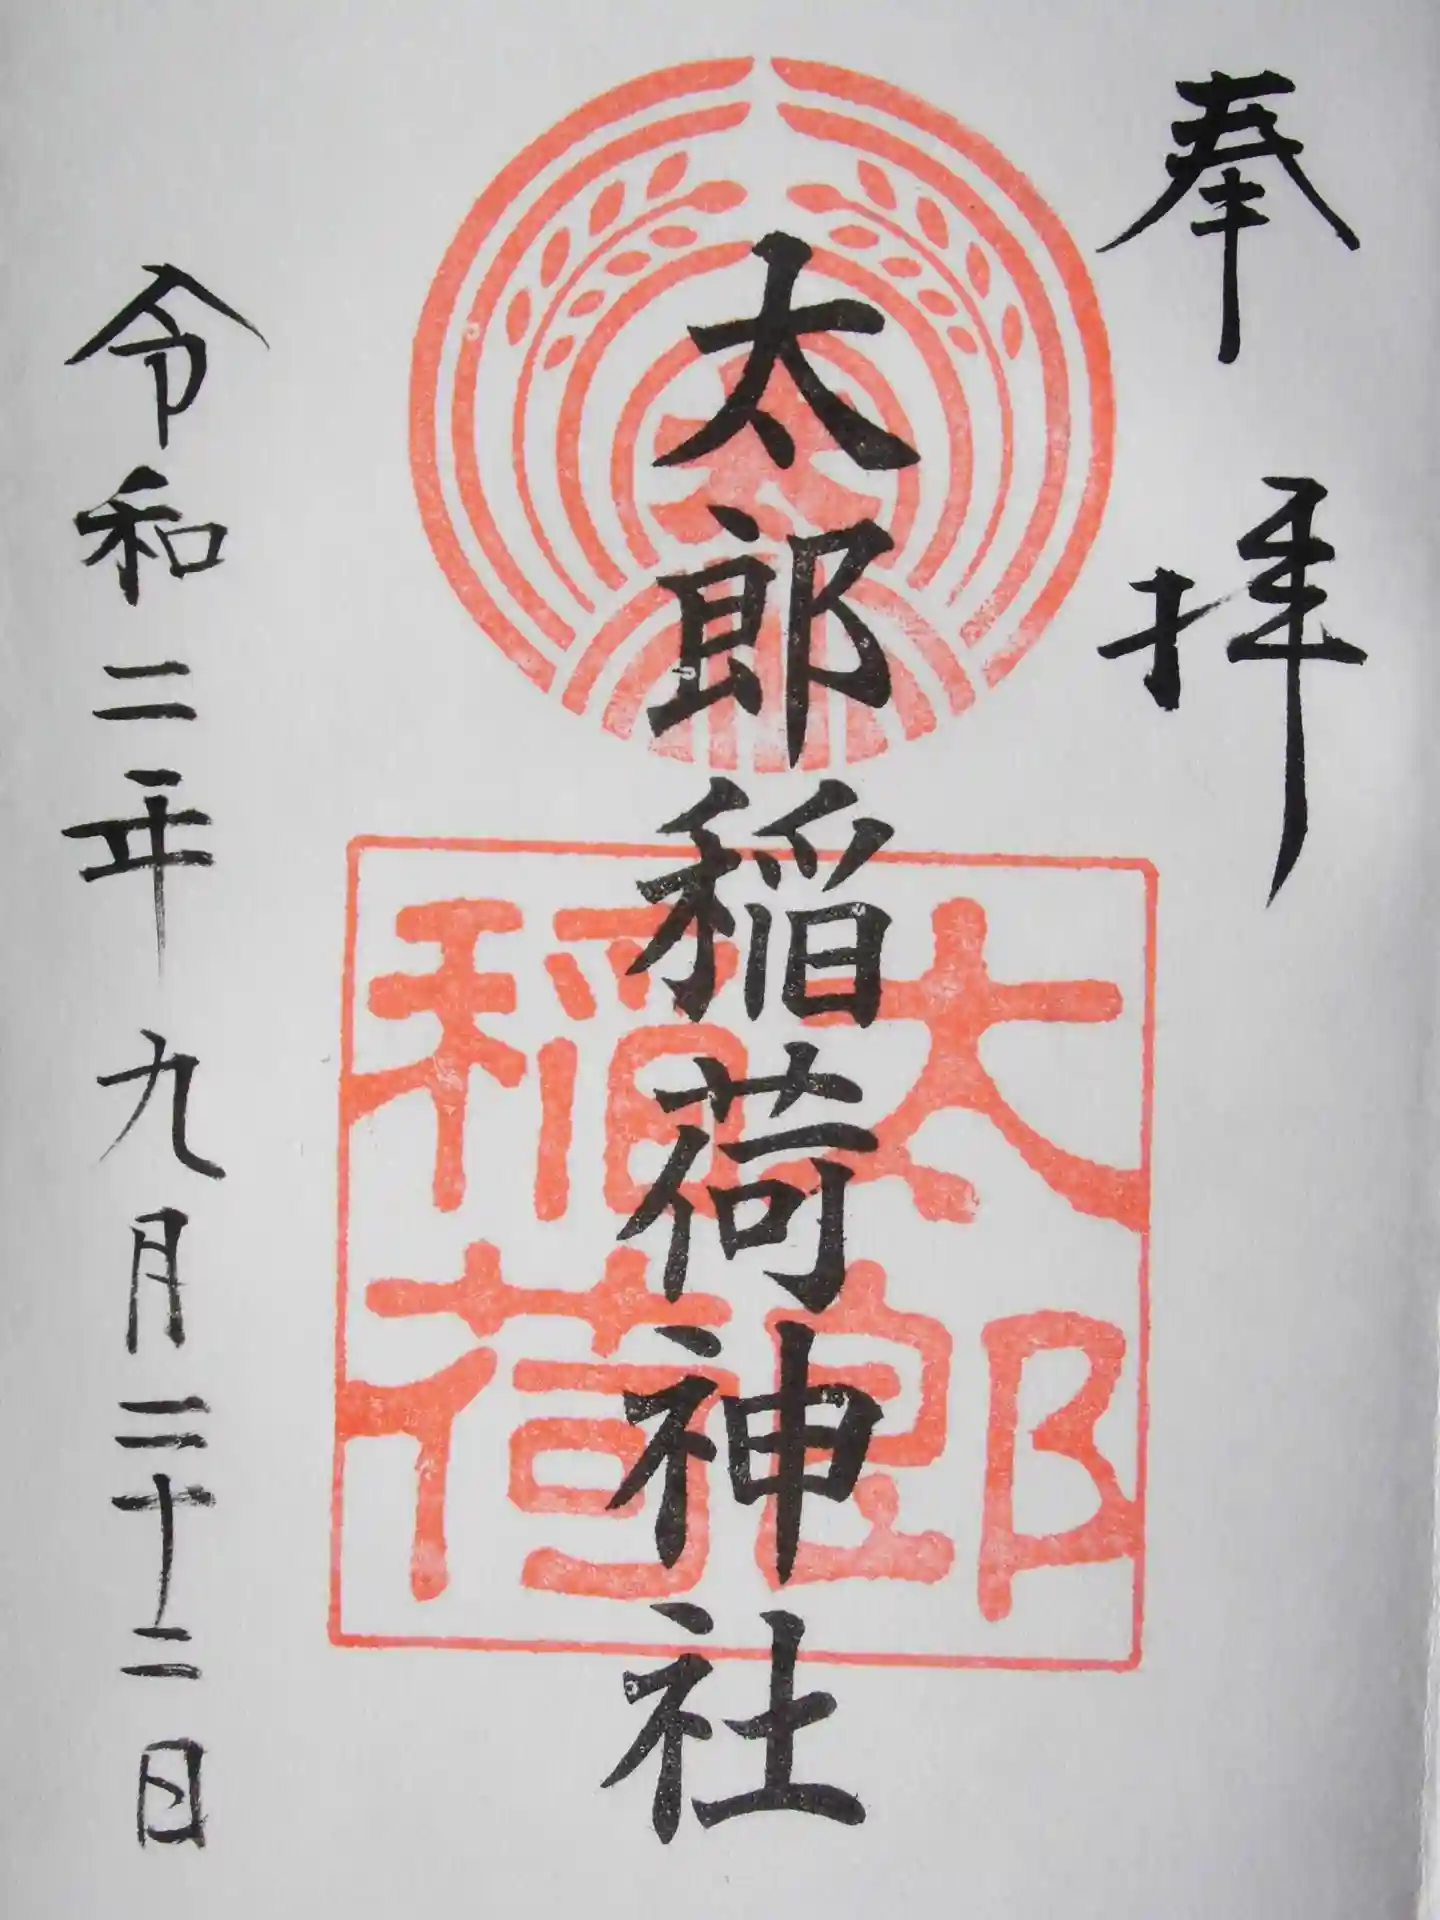 奉拝
太郎稲荷神社
太
太郎
稲荷
令和二年九月二十二日